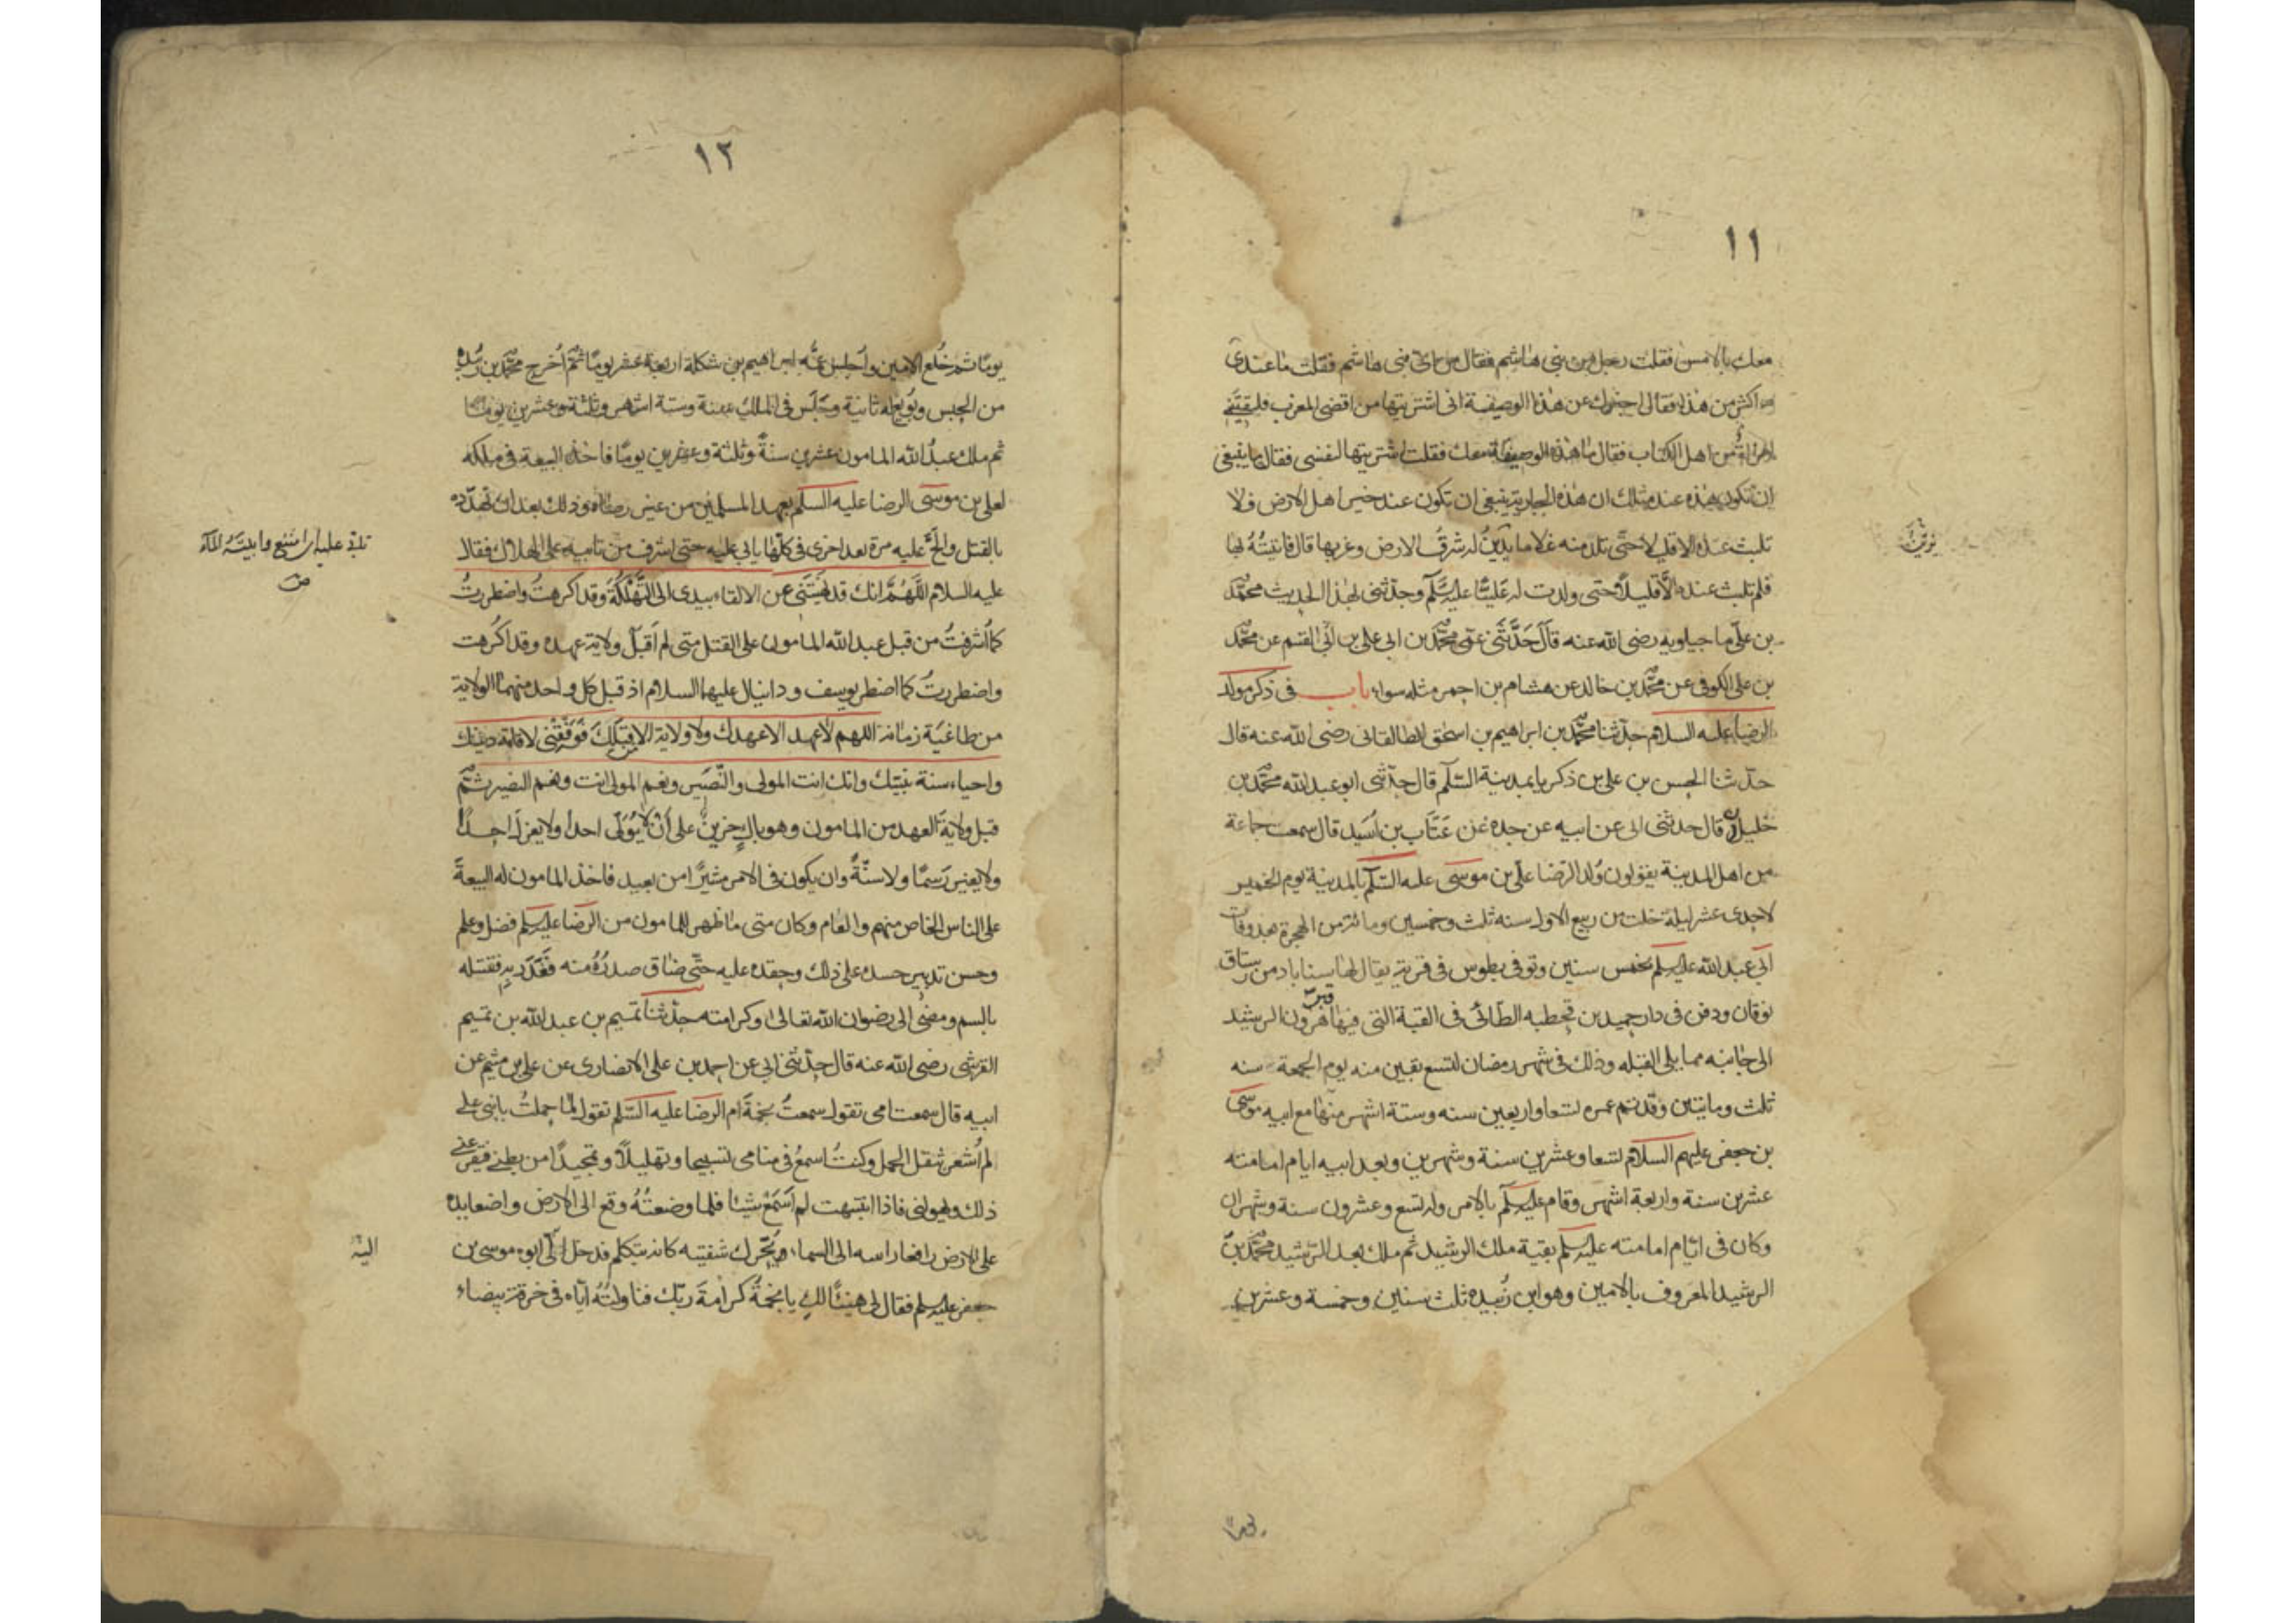 ١١
معك بالامس فقلت رجل من بنى هاشم فقال من اىّ بنى هاشم فقلت ما عندى
اكثر من هذا فقال اخبرك عن هذه الوصيفة انى اشتريتها من اقصى المغرب فلقيتنى
امراة من اهل الكتاب فقال ما هذه الوصيفة معك فقلت اشتريتها لنفسى فقال ما ينبغى
ان تكون هذه عند مثلك ان هذه الجارية ينبغى ان تكون عند خير اهل الارض فلا
تلبث عنده الا قليلا حتّى تلد منه غلاما يدين له شرق الارض وغربها قال فاتيتُهُ بها
فلم تلبث عنده الّا قليلاً حتى ولدت له عَليًّا عليه السّلم وحدّثنى بهذا الحديث محمّد
بن علىّ ماجيلويه رضى الله عنه قال حَدَّثَنى عمّى محمّد بن ابى القسم عن محمّد
بن على الكوفى عن محمّد بن خالد عن هشام بن احمر مثله سواء باب فى ذكر مولد
الرضا عليه السلام حدّثنا محمّد بن ابراهيم بن اسحق الطالقانى رضى الله عنه قال
حدّثنا الحسن بن على بن ذكريا بمدينة السّلم قال حدّثنى ابو عبد الله محمّد بن
خليلان قال حدثنى ابى عن ابيه عن جده عن عَتَّاب بن اُسَيد قال سمعت جماعة
من اهل المدينة يقولون وُلد الرّضا علىّ بن موسى عليه السّلم بالمدينة يوم الخميس
لاحدى عشر ليلة خلت من ربيع الاول سنه ثلث وخمسين ومائة من الهجرة بعد وفات
ابى عبد الله عليه السلم بخمس سنين وتوفى بطوس فى قرية يقال لها سناباد من رستاق
نوقان ودفن فى دار حميد بن قحطبه الطّائى فى القبة التى فيها قبر هرون الرشيد
الى جانبه مما يلى القبله وذلك فى شهر رمضان لتسع بقين منه يوم الجمعة سنه
ثلث ومايتين وقد تم عمره تسعا واربعين سنه وستة اشهر منها مع ابيه موسى
بن جعفر عليهم السلام تسعا وعشرين سنة وشهرين وبعد ابيه ايام امامته
عشرين سنة واربعة اشهر وقام عليه السلم بالامر وله تسع وعشرون سنة وشهران
وكان فى ايّام امامته عليه السلم بقية ملك الرشيد ثم ملك بعد الرّشيد محمّد بن
الرشيد المعروف بالامين وهو ابن زُبيده ثلث سنين وخمسة وعشرين
١٢
يومًا ثم خُلع الامين واُجلس عمّه ابراهيم بن شكلة اربعة عشر يومًا ثمّ اُخرج محمّد بن زبيدة
من الحبس وبويع له ثانية وجَلَس فى الملك سنة وستة اشهر وثلثة وعشرين يوما
ثم ملك عبد الله المامون عشرين سنةً وثلثة وعشرين يومًا فاخذ البيعة فى ملكه
لعلى بن موسى الرضا عليه السلم بعهد المسلمين من غير رضاه وذلك بعد ان تهدّده
بالقتل والحّ عليه مرة بعد اخرى فى كلّها يابى عليه حتى اشرف من تابيه على الهلاك فقال
عليه السلام اللّهُمَّ انك قد نهيتَنى عن الالقاء بيدى الى التَّهْلُكَة وقد اكرهتُ واضطررتُ
كما اشرفتُ من قبل عبد الله المامون على القتل متى لم اَقبَل ولاية عهده وقد اكرهت
واضطررتُ كما اضطر يوسف ودانيال عليهما السلام اذ قبل كل واحد منهما الولاية
من طاغيَة زمانه اللهم لا عهد الا عهدك ولا ولاية الا من قبلك فَوَفِّقْنى لاقامة دينك
واحياء سنة نبيّك وانك انت المولى والنّصير ونعم المولى انت ونعم النصير ثمّ
قبل ولاية العهد من المامون وهو باكٍ حزينٌ على اَنْ لا يُوَلّى احدا ولا يعزل احدًا
ولا يغير رَسمًا ولا سنّةً وان يكون فى الامر مشيرًا من بعيد فاخذ المامون له البيعة
على الناس الخاص منهم والعام وكان متى ما ظهر للمامون من الرضا عليه السلم فضل وعلم
وحسن تدبير حسده على ذلك وحقده عليه حتّى ضاق صدرُهُ منه فغَدَر به فقتله
بالسم ومضى الى رضوان الله تعالى وكرامته حدّثنا تميم بن عبد الله بن تميم
القرشى رضى الله عنه قال حدّثنى ابى عن احمد بن على الانصارى عن على بن ميثم عن
ابيه قال سمعت امى تقول سمعتُ نجمةَ ام الرضا عليه السّلم تقول لمّا حملتُ بابنى على
لم اُشعر بثقل الحمل وكنتُ اسمعُ فى منامى تسبيحا وتهليلاً وتمجيدًا من بطنى فيفزعنى
ذلك ويهولنى فاذا انتبهت لم اَسمَعْ شيئا فلما وضعتُهُ وقع الى الارض واضعا يده
على الارض رافعا راسه الى السماء ويُحرّك شفتيه كانه يتكلم فدخل الىّ ابوه موسى بن
جعفر عليه السلم فقال لى هنيئًا لكِ يا نجمةُ كرامةَ ربّك فناولتُهُ ايّاه فى خرقة بيضاء